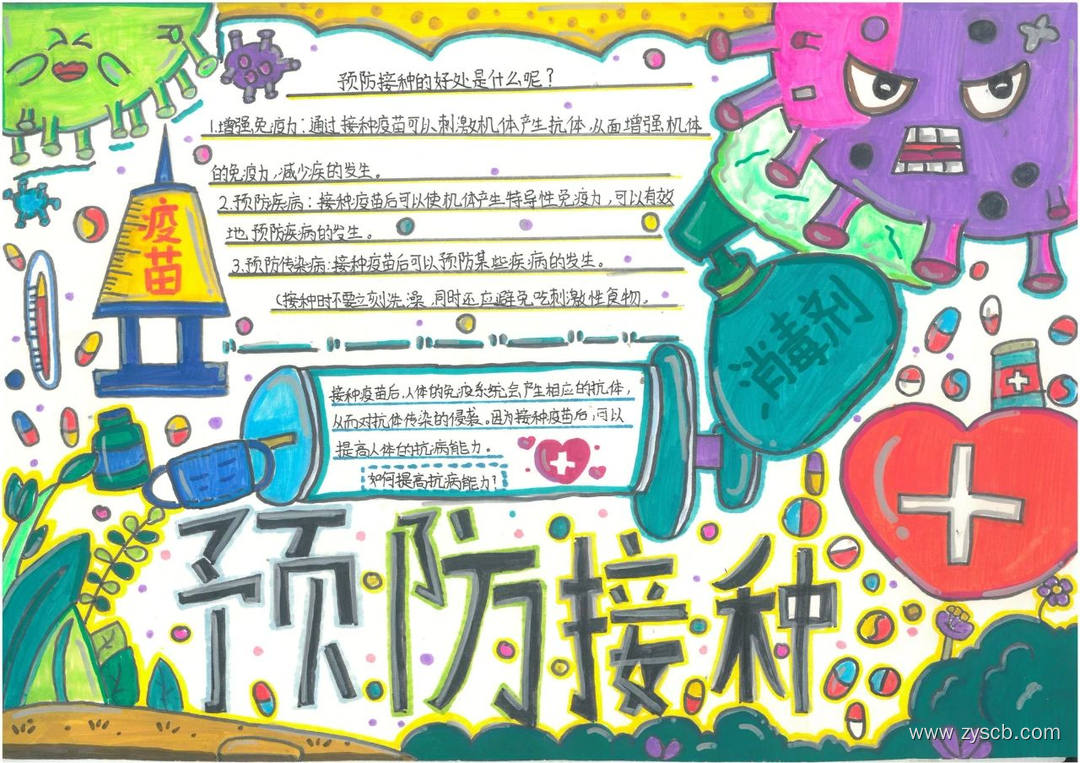 预防接种的好处是什么呢？
1.增强免疫力：通过接种疫苗可以刺激机体产生抗体，从而增强机体
的免疫力，减少疾的发生。
2.预防疾病：接种疫苗后可以使机体产生特导性免疫力，可以有效
地预防疾病的发生。
3.预防传染病：接种疫苗后可以预防某些疾病的发生。
(接种时不要立刻洗澡，同时还应避免吃刺激性食物。
疫苗
消毒剂
接种疫苗后，人体的免疫系统会产生相应的抗体，
从而对抗体传染的侵袭。因为接种疫苗后，可以
提高人体的抗病能力。
如何提高抗病能力？
预防接种
www.zyscb.com